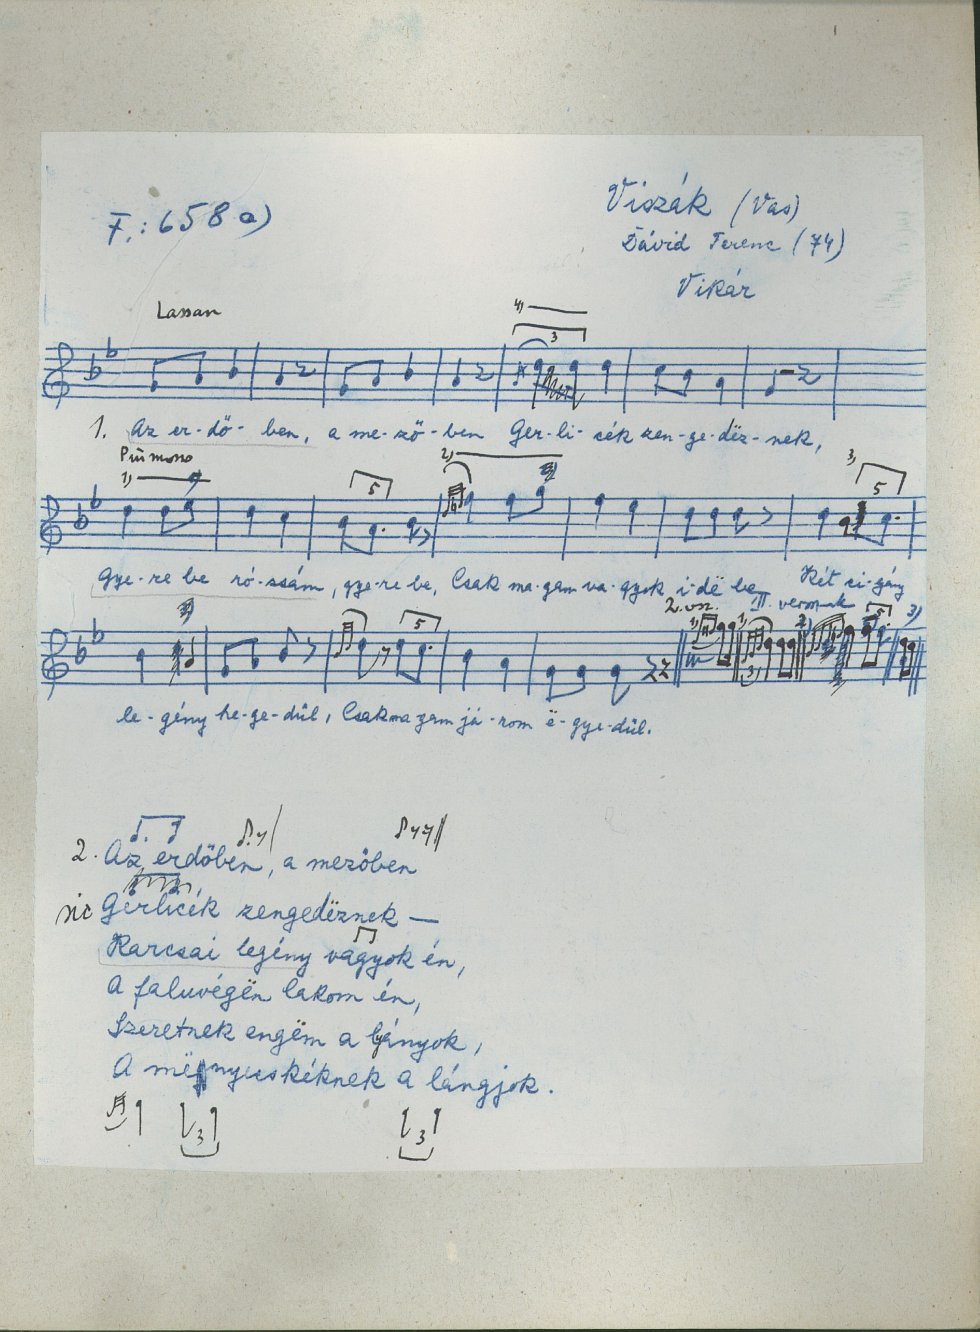 F.: 658 a)
Viszák (Vas)
Dávid Ferenc (74)
Vikár
Lassan
4)
3
1. Az er-dő- ben, a me-ző-ben Ger-li-cék zen-ge-dëz-nek,
Piú mosso
1) 2) 3)
5 5
Gye-re be ró-zsám, gye-re be, Csak ma-gam va-gyok i-dë be, Két ci-gány
2. vsz. II. versnek
1) 1) 2) 3)
5 3 5
le-gény he-ge-dül, Csak magam já-rom ë-gye-dül.
2. Az erdőben, a mezőben
sic Gerlicék zengedëznek —
Karcsai legény vagyok én,
A faluvégën lakom én,
Szeretnek engëm a lyányok,
A mënyecskéknek a lángjok.
3 3